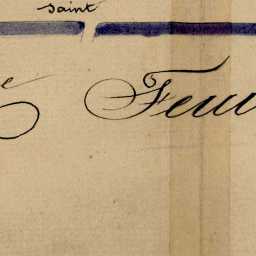 saint
e Feui